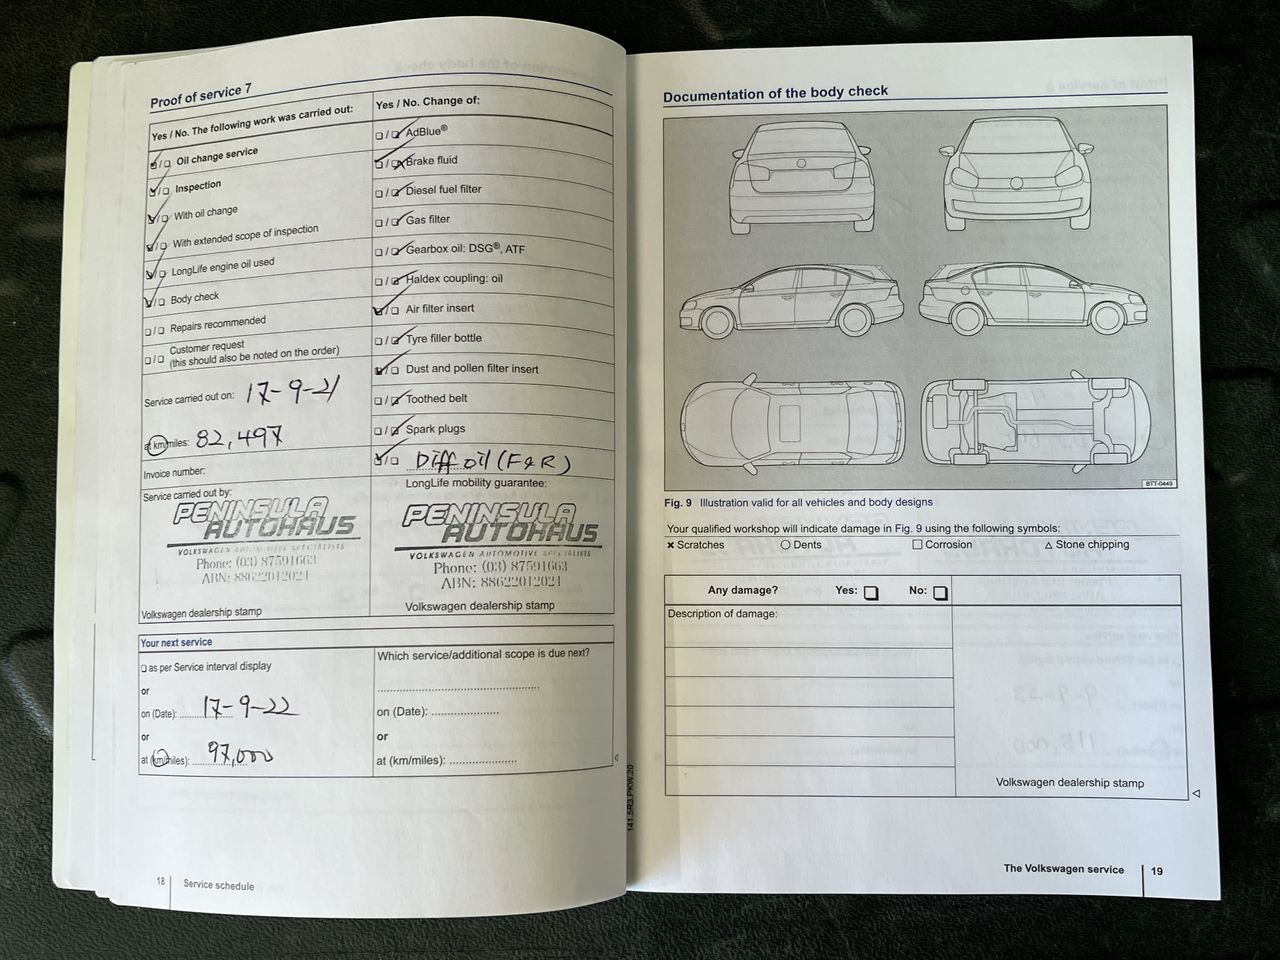 Proof of service 7
Yes / No. The following work was carried out:
Oil change service
Inspection
With oil change
With extended scope of inspection
LongLife engine oil used
Body check
Repairs recommended
Customer request
(this should also be noted on the order)
Service carried out on: 17-9-21
at km/miles: 82,497
Invoice number:
Service carried out by:
PENINSULA
AUTOHAUS
VOLKSWAGEN AUTOMOTIVE SPECIALISTS
Phone: (03) 87591663
ABN: 88622012021
Volkswagen dealership stamp
Yes / No. Change of:
AdBlue®
Brake fluid
Diesel fuel filter
Gas filter
Gearbox oil: DSG®, ATF
Haldex coupling: oil
Air filter insert
Tyre filler bottle
Dust and pollen filter insert
Toothed belt
Spark plugs
Diff oil (F & R)
LongLife mobility guarantee:
PENINSULA
AUTOHAUS
VOLKSWAGEN AUTOMOTIVE SPECIALISTS
Phone: (03) 87591663
ABN: 88622012021
Volkswagen dealership stamp
Your next service
as per Service interval display
or
on (Date): 17-9-22
or
at (km/miles): 97,000
Which service/additional scope is due next?
on (Date):
or
at (km/miles):
18 Service schedule
141.5R3.PKW.20
Documentation of the body check
BTT-0449
Fig. 9 Illustration valid for all vehicles and body designs
Your qualified workshop will indicate damage in Fig. 9 using the following symbols:
× Scratches ○ Dents □ Corrosion △ Stone chipping
Any damage? Yes: No:
Description of damage:
Volkswagen dealership stamp
The Volkswagen service 19